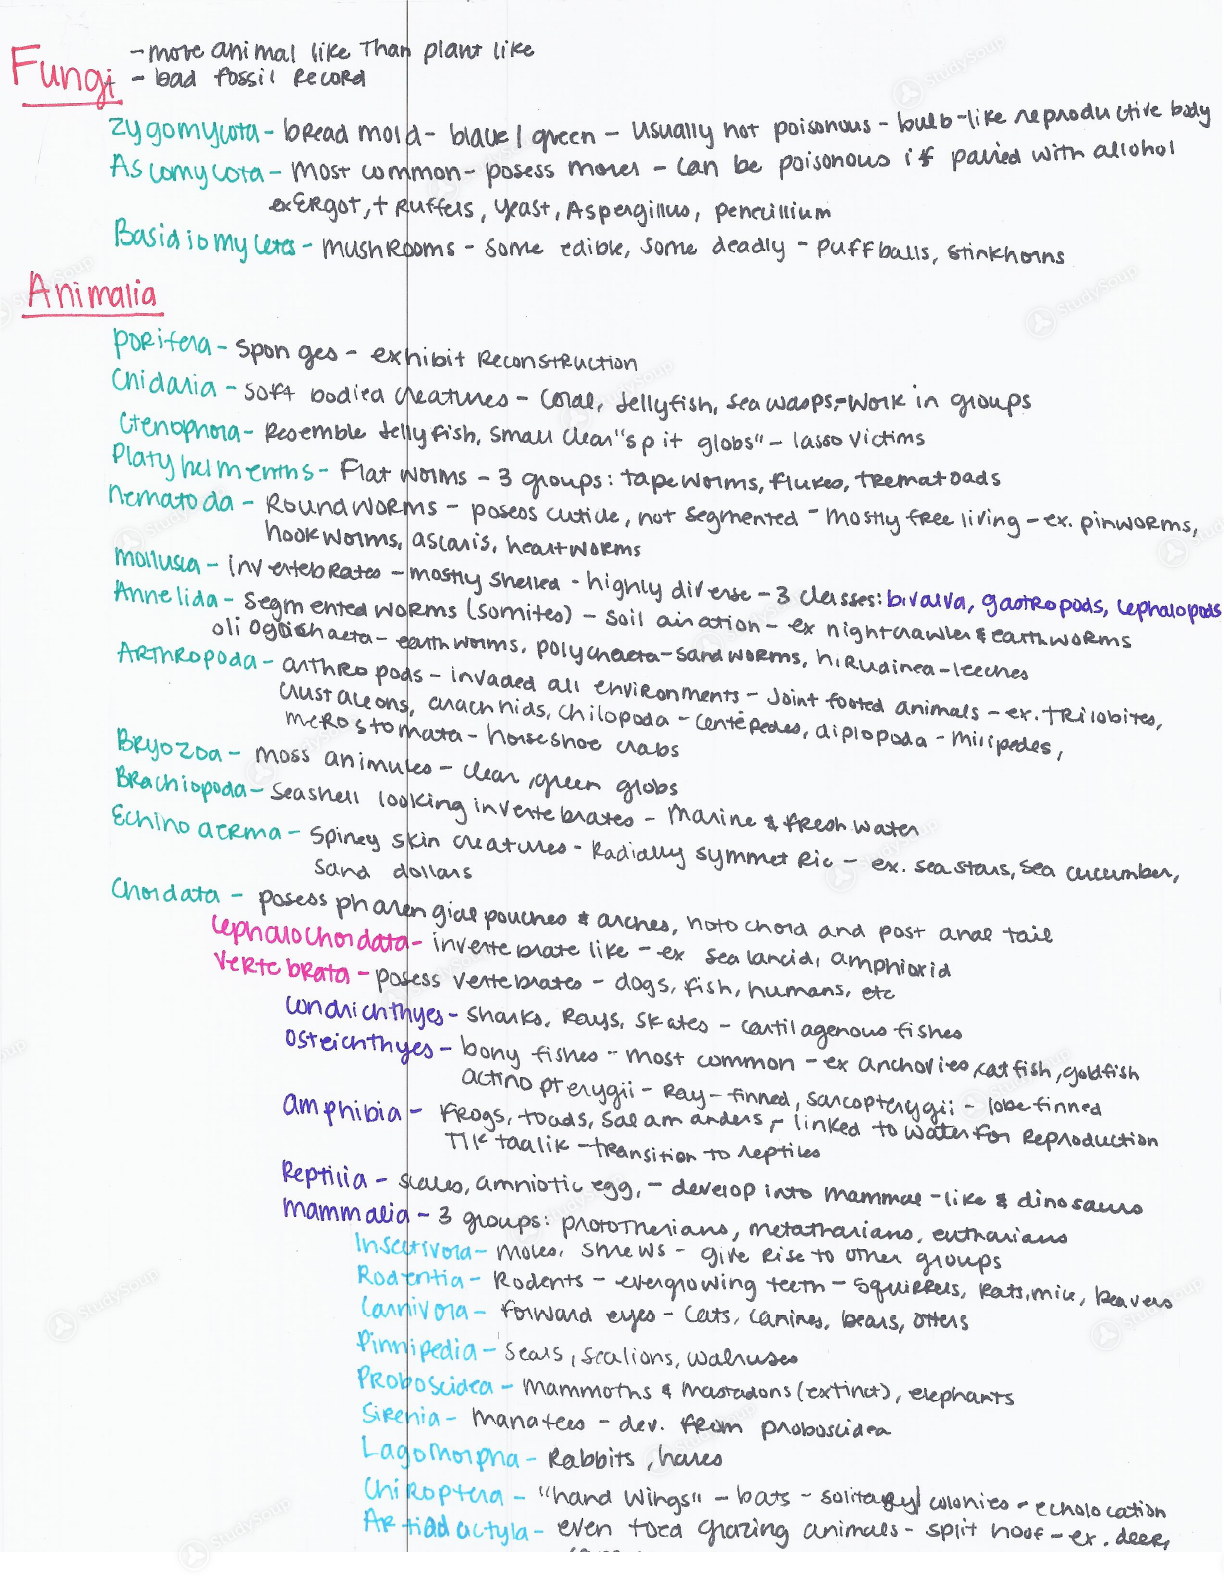 Fungi
- more animal like than plant like
- bad fossil record
Zygomycota - bread mold - blue / green - usually not poisonous - bulb-like reproductive body
Ascomycota - most common - posess morels - can be poisonous if paired with alcohol
ex Ergot, truffels, yeast, Aspergillus, pencillium
Basidiomycetes - mushrooms - some edible, some deadly - puffballs, stinkhorns
Animalia
Porifera - sponges - exhibit reconstruction
Cnidaria - soft bodied creatures - coral, jellyfish, sea wasps, - work in groups
Ctenophora - Resemble jellyfish, small clear "spit globs" - lasso victims
Platyhelmenths - Flat worms - 3 groups: tapeworms, flukes, trematoads
nematoda - Roundworms - poseos cuticle, not segmented - mostly free living - ex. pinworms,
hookworms, ascaris, heartworms
mollusca - invertebrates - mostly shelled - highly diverse - 3 classes: bivalva, gastropods, cephalopods
Annelida - segmented worms (somites) - soil airation - ex nightcrawler & earthworms
oliogochaeta - earthworms, polychaeta - sandworms, hirudinea - leeches
Arthropoda - arthropods - invaded all environments - joint footed animals - ex. trilobites,
crustaceons, arachnids, chilopoda - centepedes, diplopoda - milipedes,
merostomata - horseshoe crabs
Bryozoa - moss animules - clear, green globs
Brachiopoda - seashell looking invertebrates - marine & freshwater
Echinoderma - spiney skin creatures - Radially symmetric - ex. seastars, sea cucumber,
sand dollars
Chordata - posess pharengial pouches & arches, notochord and post anal tail
Cephalochordata - invertebrate like - ex sea lancid, amphioxid
Vertebrata - posess vertebrates - dogs, fish, humans, etc
Condrichthyes - sharks, Rays, skates - cartilagenous fishes
Osteichthyes - bony fishes - most common - ex anchovies, catfish, goldfish
actinopterygii - Ray-finned, sarcopterygii - lobe finned
amphibia - frogs, toads, salamanders, - linked to water for reproduction
Tiktaalik - transition to reptiles
Reptilia - scales, amniotic egg, - develop into mammal-like & dinosaurs
mammalia - 3 groups: prototherians, metatharians, eutharians
Insectivora - moles, shrews - give rise to other groups
Rodentia - Rodents - evergrowing teeth - squirrels, rats, mice, beavers
Carnivora - forward eyes - cats, canines, bears, otters
Pinnipedia - seals, sealions, walruses
Proboscidea - mammoths & mastadons (extinct), elephants
Sirenia - manatees - dev. from proboscidea
Lagomorpha - Rabbits, hares
Chiroptera - "hand wings" - bats - solitary / colonies - echolocation
Artiodactyla - even toed grazing animals - split hoof - ex. deer,